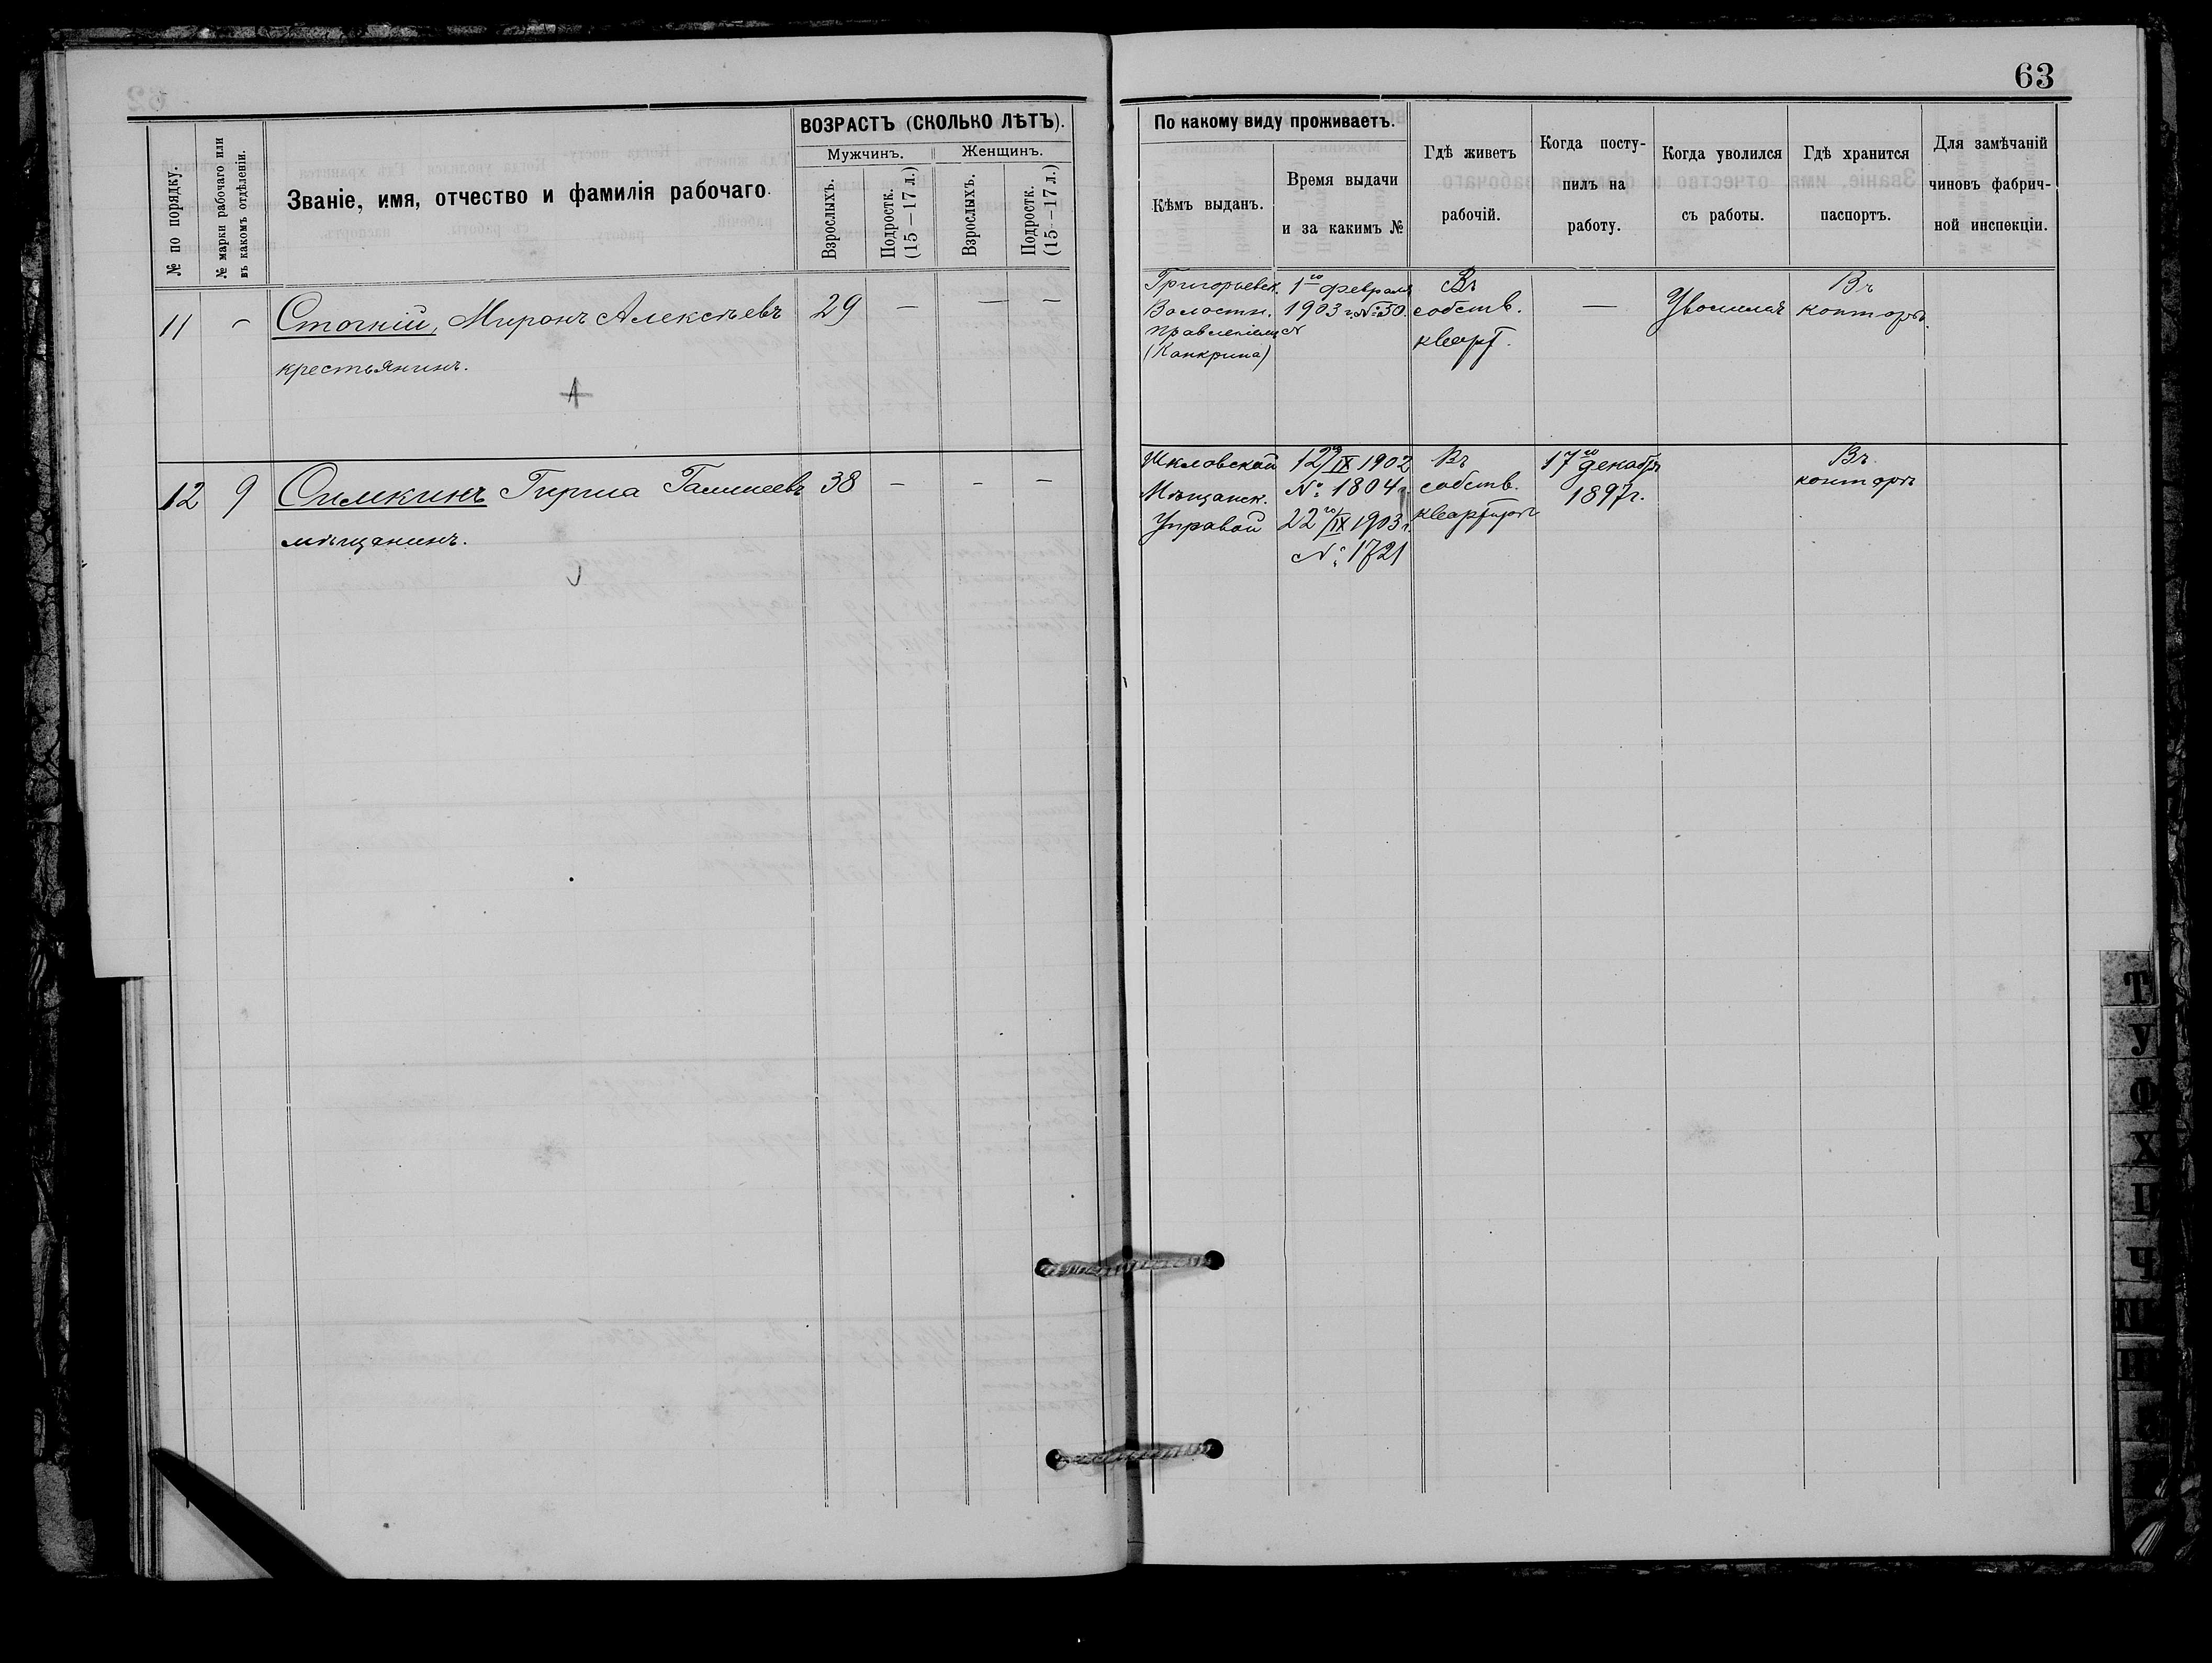 63
№ по порядку.
№ марки рабочаго или
въ какомъ отдѣленіи.
Званіе, имя, отчество и фамилія рабочаго.
ВОЗРАСТЪ (СКОЛЬКО ЛѢТЪ).
Мужчинъ.
Женщинъ.
Взрослыхъ.
Подростк.
(15—17 л.)
Взрослыхъ.
Подростк.
(15—17 л.)
По какому виду проживаетъ.
Кѣмъ выданъ.
Время выдачи
и за какимъ №
Гдѣ живетъ
рабочій.
Когда посту-
пилъ на
работу.
Когда уволился
съ работы.
Гдѣ хранится
паспортъ.
Для замѣчаній
чиновъ фабрич-
ной инспекціи.
11 — Стогній, Миронъ Алексѣевъ 29 — — —
крестьянинъ.
Григорьевск.
Волостн.
правленіемъ
(Канкрина)
1го февраля
1903 г. № 50
Въ
собств.
кварт.
—
Уволился
Въ
конторѣ.
12 9 Симкинъ Гирша 38 — — —
мѣщанинъ.
Шкловской
Мѣщанск.
Управой
12го/IX 1902
№ 1804
22го/IX 1903 г.
№ 1721
Въ
собств.
квартирѣ
17го декабря
1897 г.
Въ
конторѣ
Т
У
Ф
Х
Ц
Ч
Ш
Щ